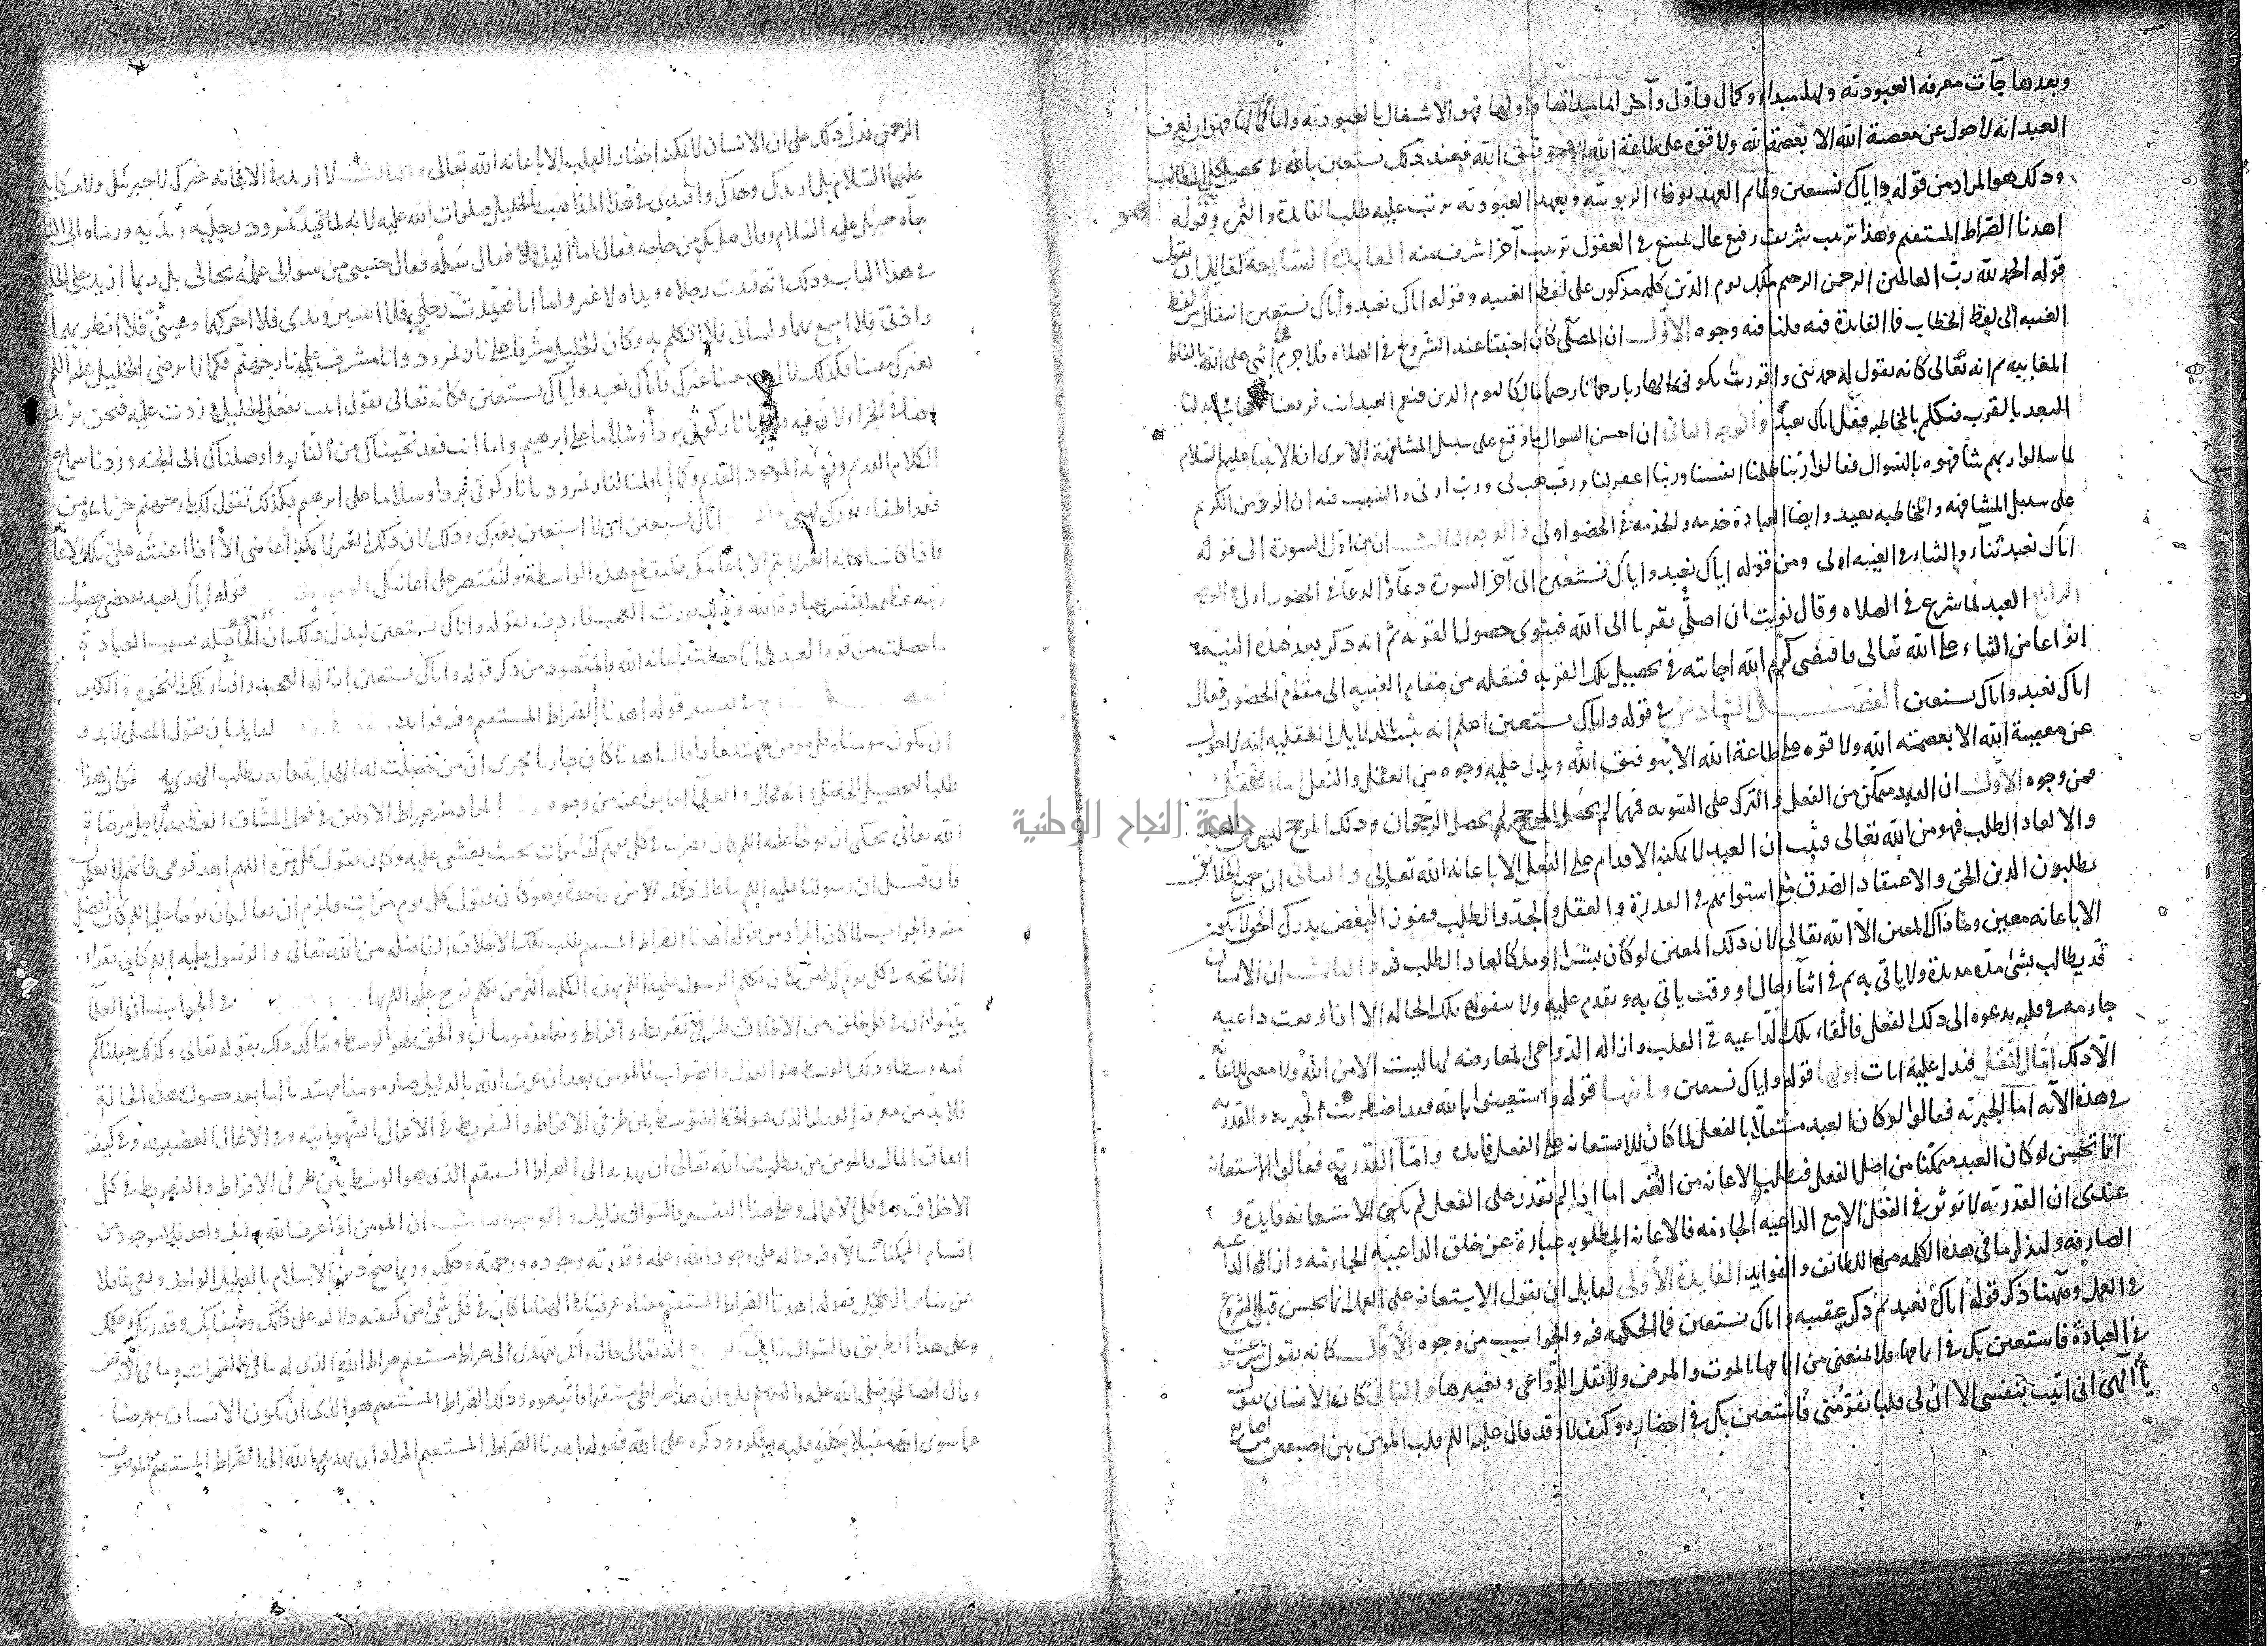 وبعدها جآت معرفة العبودية ولها مبداء وكمال واول وآخر اما مبداها واولها فهو الاشتغال بالعبودية واما كمالها فهو ان يعرف
العبد انه لا حول عن معصية الله الا بعصمة الله ولا قوة على طاعة الله الا بتوفيق الله فعند ذلك يستعين بالله في تحصيل كل المطالب
وذلك هو المراد من قوله واياك نستعين ولما تم العهد بوفاء الربوبية وبعهد العبودية ترتب عليه طلب الفايدة والثمرة وقوله
اهدنا الصراط المستقيم وهذا ترتيب شريف رفيع عال يمتنع في العقول ترتيب آخر اشرف منه الفايدة السابعة لقايل ان يقول
قوله الحمد لله رب العالمين الرحمن الرحيم ملك يوم الدين كله مذكور على لفظ الغيبه وقوله اياك نعبد واياك نستعين انتقال من لفظ
الغيبه الى لفظ الخطاب فما الفايدة فيه قلنا فيه وجوه الاول ان المصلي كان اجنبيا عند الشروع في الصلاه فلا جرم اثنى على الله بالفاظ
المغايبه ثم انه تعالى كانه يقول له حمدتني واقررت بكوني الها ربا رحمانا رحيما مالكا ليوم الدين فنعم العبد انت قد رفعنا الحجاب وابدلنا
البعد بالقرب فتكلم بالمخاطبه فقل اياك نعبد والوجه الثاني ان احسن السوال ما وقع على سبيل المشافهة الا ترى ان الانبيا عليهم السلام
لما سالوا ربهم شافهوه بالسوال فقالوا ربنا ظلمنا انفسنا وربنا اغفر لنا ورب هب لي ورب ارني والسبب فيه ان الرد من الكريم
على سبيل المشافهة والمخاطبه بعيد وايضا العبادة خدمه والخدمه في الحضور اولى والوجه الثالث ان من اول السورة الى قوله
اياك نعبد ثناء والثناء في الغيبه اولى ومن قوله اياك نعبد واياك نستعين الى آخر السورة دعآ والدعآ في الحضور اولى والوجه
الرابع العبد لما شرع في الصلاه وقال نويت ان اصلي تقربا الى الله فينوي حصول القربه ثم انه ذكر بعد هذه النية
انواعا من الثناء على الله تعالى فاقتضى كرم الله اجابته في تحصيل تلك القربه فنقله من مقام الغيبه الى مقام الحضور فقال
اياك نعبد واياك نستعين الفصل السادس في قوله واياك نستعين اعلم انه ثبت بالدلايل العقليه انه لا حول
عن معصية الله الا بعصمة الله ولا قوه على طاعة الله الا بتوفيق الله ويدل عليه وجوه من العقل والنقل اما العقل
فمن وجوه الاول ان العبد متمكن من الفعل والترك على السويه فمهما لم يحصل المرجح لم يحصل الرجحان وذلك المرجح ليس من العبد
والا لعاد الطلب فهو من الله تعالى فثبت ان العبد لا يمكنه الاقدام على الفعل الا باعانه الله تعالى والثاني ان جميع الخلايق
يطلبون الدين الحق والاعتقاد الصدق مع استوايهم في القدرة والعقل والجد والطلب ففوز البعض بدرك الحق لا يكون
الا باعانه معين وما ذاك المعين الا الله تعالى لان ذلك المعين لو كان بشرا او ملكا لعاد الطلب فيه والثالث ان الانسان
قد يطالب بشئ مدة مديدة ولا ياتي به ثم في اثنآ حال او وقت ياتي به ويقدم عليه ولا يتفق له تلك الحاله الا اذا وقعت داعيه
جازمه في قلبه يدعوه الى ذلك الفعل فالقاء تلك الداعيه في القلب وازاله الدواعي المعارضه لها ليست الا من الله ولا معنى للاعانة
الا ذلك اما النقل فيدل عليه ايات اولها قوله واياك نستعين وثانيها قوله واستعينوا بالله فقد اضطربت الجبريه والقدريه
في هذه الآيه اما الجبريه فقالوا لو كان العبد مستقلا بالفعل لما كان للاستعانه على الفعل فايده واما القدريه فقالوا الاستعانه
انما تحسن لو كان العبد متمكنا من اصل الفعل فيطلب الاعانه من الغير اما اذا لم يقدر على الفعل لم يكن للاستعانه فايدة و
عندي ان القدره لا توثر في الفعل الا مع الداعيه الجازمه فالاعانه المطلوبه عبارة عن خلق الداعيه الجازمه وازالة الداعيه
الصارفه ولنذكر ما في هذه الكلمه من اللطايف والفوايد الفايدة الاولى لقايل ان يقول الاستعانه على العمل انما تحسن قبل الشروع
في العمل وههنا ذكر قوله اياك نعبد ثم ذكر عقيبه واياك نستعين فما الحكمه فيه والجواب من وجوه الاول كانه يقول شرعت
في العبادة فاستعين بك في اتمامها فلا تمنعني من اتمامها بالموت والمرض ولا بقلب الدواعي وتغيرها والثاني كان الانسان يقول
يا الهي اني اتيت بنفسي الا ان لي قلبا يفر مني فاستعين بك في احضاره وكيف لا وقد قال عليه السلم قلب المومن بين اصبعين من اصابع
الرحمن فدل ذلك على ان الانسان لا يمكنه احضار القلب الا باعانه الله تعالى والثالث لا اريد في الاعانه غيرك لا جبريل ولا ميكايل
عليهما السلام بل اريدك وحدك واقتدي في هذا المذهب بالخليل صلوات الله عليه لانه لما قيد نمرود رجليه ويديه ورماه الى النار
جآه جبريل عليه السلام وقال هل بك من حاجه فقال اما اليك فلا فقال سله فقال حسبي من سوالي علمه بحالي بل ربما ازيد على الخليل
في هذا الباب وذلك انه قيدت رجلاه ويداه لا غير واما انا فقيدت رجلي فلا اسير ويدي فلا احركهما وعيني فلا انظر بهما
واذني فلا اسمع بهما ولساني فلا اتكلم به وكان الخليل مشرفا على نار نمرود وانا مشرف على نار جهنم فكما لا يرضى الخليل عليه السلم
بغيرك معينا فكذلك لا اريد معينا غيرك فاياك نعبد واياك نستعين فكانه تعالى يقول اتيت بفعل الخليل وزدت عليه فنحن نزيد
ايضا في الجزاء لان فيه قلنا يا نار كوني بردا وسلاما على ابرهيم واما انت فقد نجيناك من النار واوصلناك الى الجنه وزدنا سماع
الكلام القديم ورويه الموجود القديم وكما انا قلنا لنار نمرود يا نار كوني بردا وسلاما على ابرهيم فكذلك تقول لك نار جهنم جز يا مومن
فقد اطفاء نورك لهبي اياك نستعين اي لا استعين بغيرك وذلك لان ذلك الغير لا يمكنه اعانتي الا اذا اعنته على تلك الاعانة
فاذا كانت اعانه الغير لا تتم الا باعانتك فلنقطع هذه الواسطة ولنقتصر على اعانتك قوله اياك نعبد يقتضي حصول
رتبه عظيمه للنفس بعبادة الله وذلك يورث العجب فاردف بقوله واياك نستعين ليدل ذلك ان الحاصله بسبب العبادة
ما حصلت من قوة العبد بل انما حصلت باعانه الله فالمقصود من ذكر قوله واياك نستعين ازاله العجب وافناء تلك النخوه والكبر
في تفسير قوله اهدنا الصراط المستقيم وفيه فوايد لقايل ان يقول المصلي لا بد و
ان يكون مومنا وكل مومن مهتد فاذا قال اهدنا كان جاريا مجرى ان من حصلت له الهدايه فانه يطلب الهدايه فكان هذا
طلبا لتحصيل الحاصل وانه محال والعلمآ اجابوا عنه من وجوه المراد منه صراط الاولين في تحمل المشاق العظيمه لاجل مرضاة
الله تعالى يحكى ان نوحا عليه السلم كان يضرب في كل يوم كذا مرات بحيث يغشى عليه وكان يقول كل مره اللهم اهد قومي فانهم لا يعلمون
فان قيل ان رسولنا عليه السلم ما قال ذلك الا مره واحدة وهو كان يقول كل يوم مرات فلزم ان يقال ان نوحا عليه السلم كان افضل
منه والجواب لما كان المراد من قوله اهدنا الصراط المستقيم طلب تلك الاخلاق الفاضله من الله تعالى والرسول عليه السلم كان يقراء
الفاتحه في كل يوم كذا مره كان تكلم الرسول عليه السلم بهذه الكلمه اكثر من تكلم نوح عليه السلم بها في الجواب ان العلمآ
بينوا ان في كل خلق من الاخلاق طرفي تفريط وافراط وهما مذمومان والحق هو الوسط ويتاكد ذلك بقوله تعالى وكذلك جعلناكم
امة وسطا وذلك الوسط هو العدل والصواب فالمومن بعد ان عرف الله بالدليل صار مومنا مهتديا اما بعد حصول هذه الحالة
فلا بد من معرفة العدل الذي هو الخط المتوسط بين طرفي الافراط والتفريط في الاعمال الشهوانيه وفي الاعمال الغضبيه وفي كيفية
انفاق المال فالمومن يطلب من الله تعالى ان يهديه الى الصراط المستقيم الذي هو الوسط بين طرفي الافراط والتفريط في كل
الاخلاق وفي كل الاعمال وعلى هذا التفسير فالسوال زايل والوجه الثالث ان المومن اذا عرف الله بدليل واحد فلا موجود من
اقسام الممكنات الا وفيه دلاله على وجود الله وعلمه وقدرته وجوده ورحمته وحكمته وربما صح دين الاسلام بالدليل الواحد وبقي غافلا
عن ساير الدلايل فقوله اهدنا الصراط المستقيم معناه عرفنا يا الهنا ما كان في كل شئ من كيفيه دلالته على ذاتك وصفاتك وقدرتك وعلمك
وعلى هذا الطريق فالسوال زايل انه تعالى قال وانك لتهدي الى صراط مستقيم صراط الله الذي له ما في السموات وما في الارض
وقال ايضا لمحمد صلى الله عليه وان هذا صراطي مستقيما فاتبعوه وذلك الصراط المستقيم هو الذي ان يكون الانسان معرضا
عما سوى الله مقبلا بكلية قلبه وفكره وذكره على الله فقوله اهدنا الصراط المستقيم المراد ان يهديه الله الى الصراط المستقيم الموصوف
جامعة النجاح الوطنية